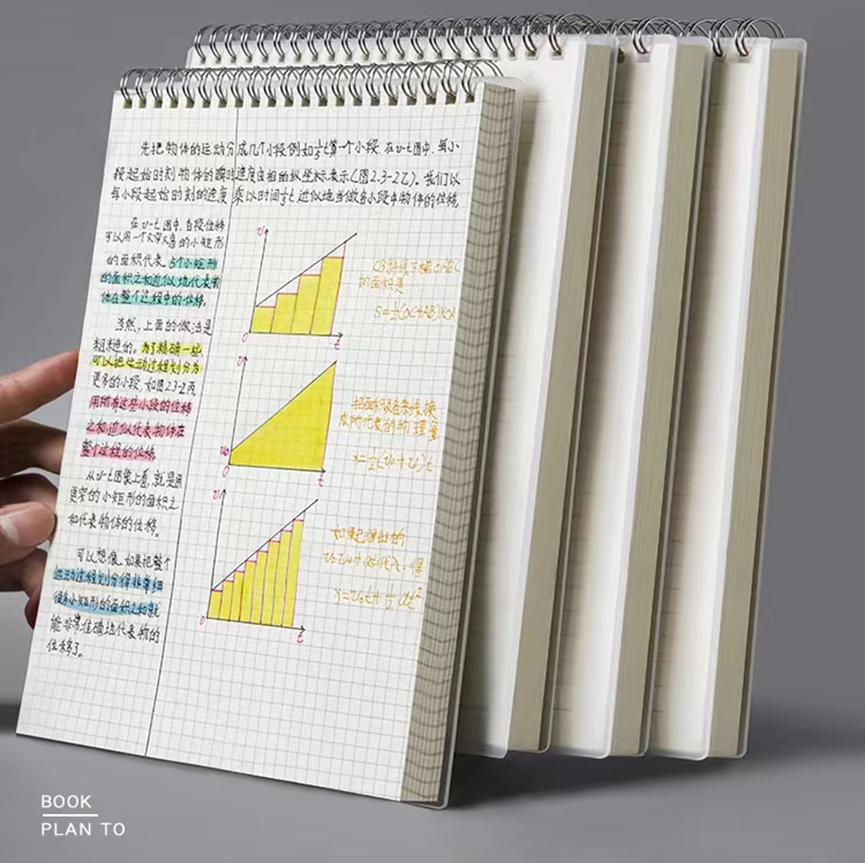 先把物体的运动分成几个小段,例如t/5算一个小段,在v-t图中,每小
段起始时刻物体的瞬时速度由相应的纵坐标表示(图2.3-2乙)。我们以
每小段起始时刻的速度乘以时间t/5近似地当做各小段中物体的位移,
在v-t图中,各段位移
可以用一个又窄又高的小矩形
的面积代表,5个小矩形
的面积之和近似地代表物
体在整个过程中的位移,
当然,上面的做法是
粗糙的。为了精确一些,
可以把运动过程划分为
更多的小段,如图2.3-2丙,
用所有这些小段的位移
之和近似代表物体在
整个过程的位移。
从v-t图象上看,就是用
更窄的小矩形的面积之
和代表物体的位移。
可以想像,如果把整个
运动过程划分得非常细
很多小矩形的面积之和就
能非常准确地代表物的
位移了。
v
0
t
的面积是
S=½(OC+AB)×OA
v
v₀
0
t
把面积及各条线换
成所代表的物理量
x=½(v₀+v)t
v
0
t
如果把得出的
BOOK
PLAN TO